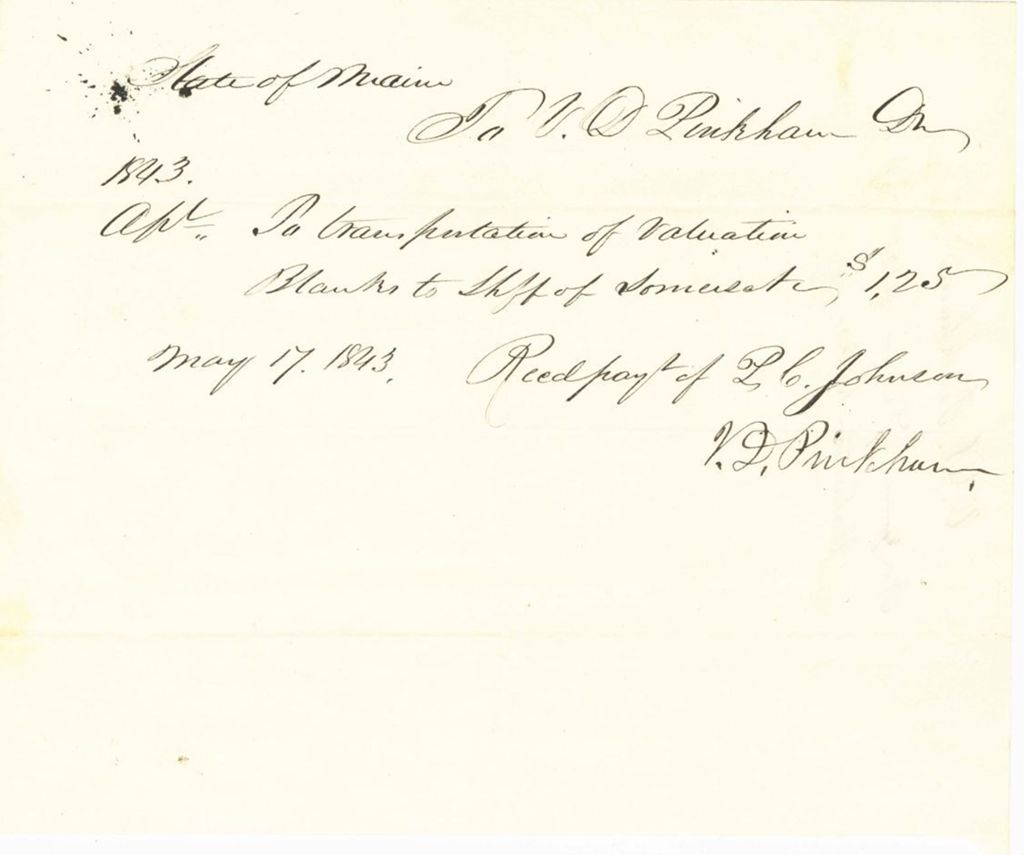 State of Maine
To V. D Pinkham Dr
1843.
Apl. To transportation of Valuation
Blanks to Shff of Somerset $1,25
May 17. 1843. Recd payt of P. C. Johnson
V. D. Pinkham.